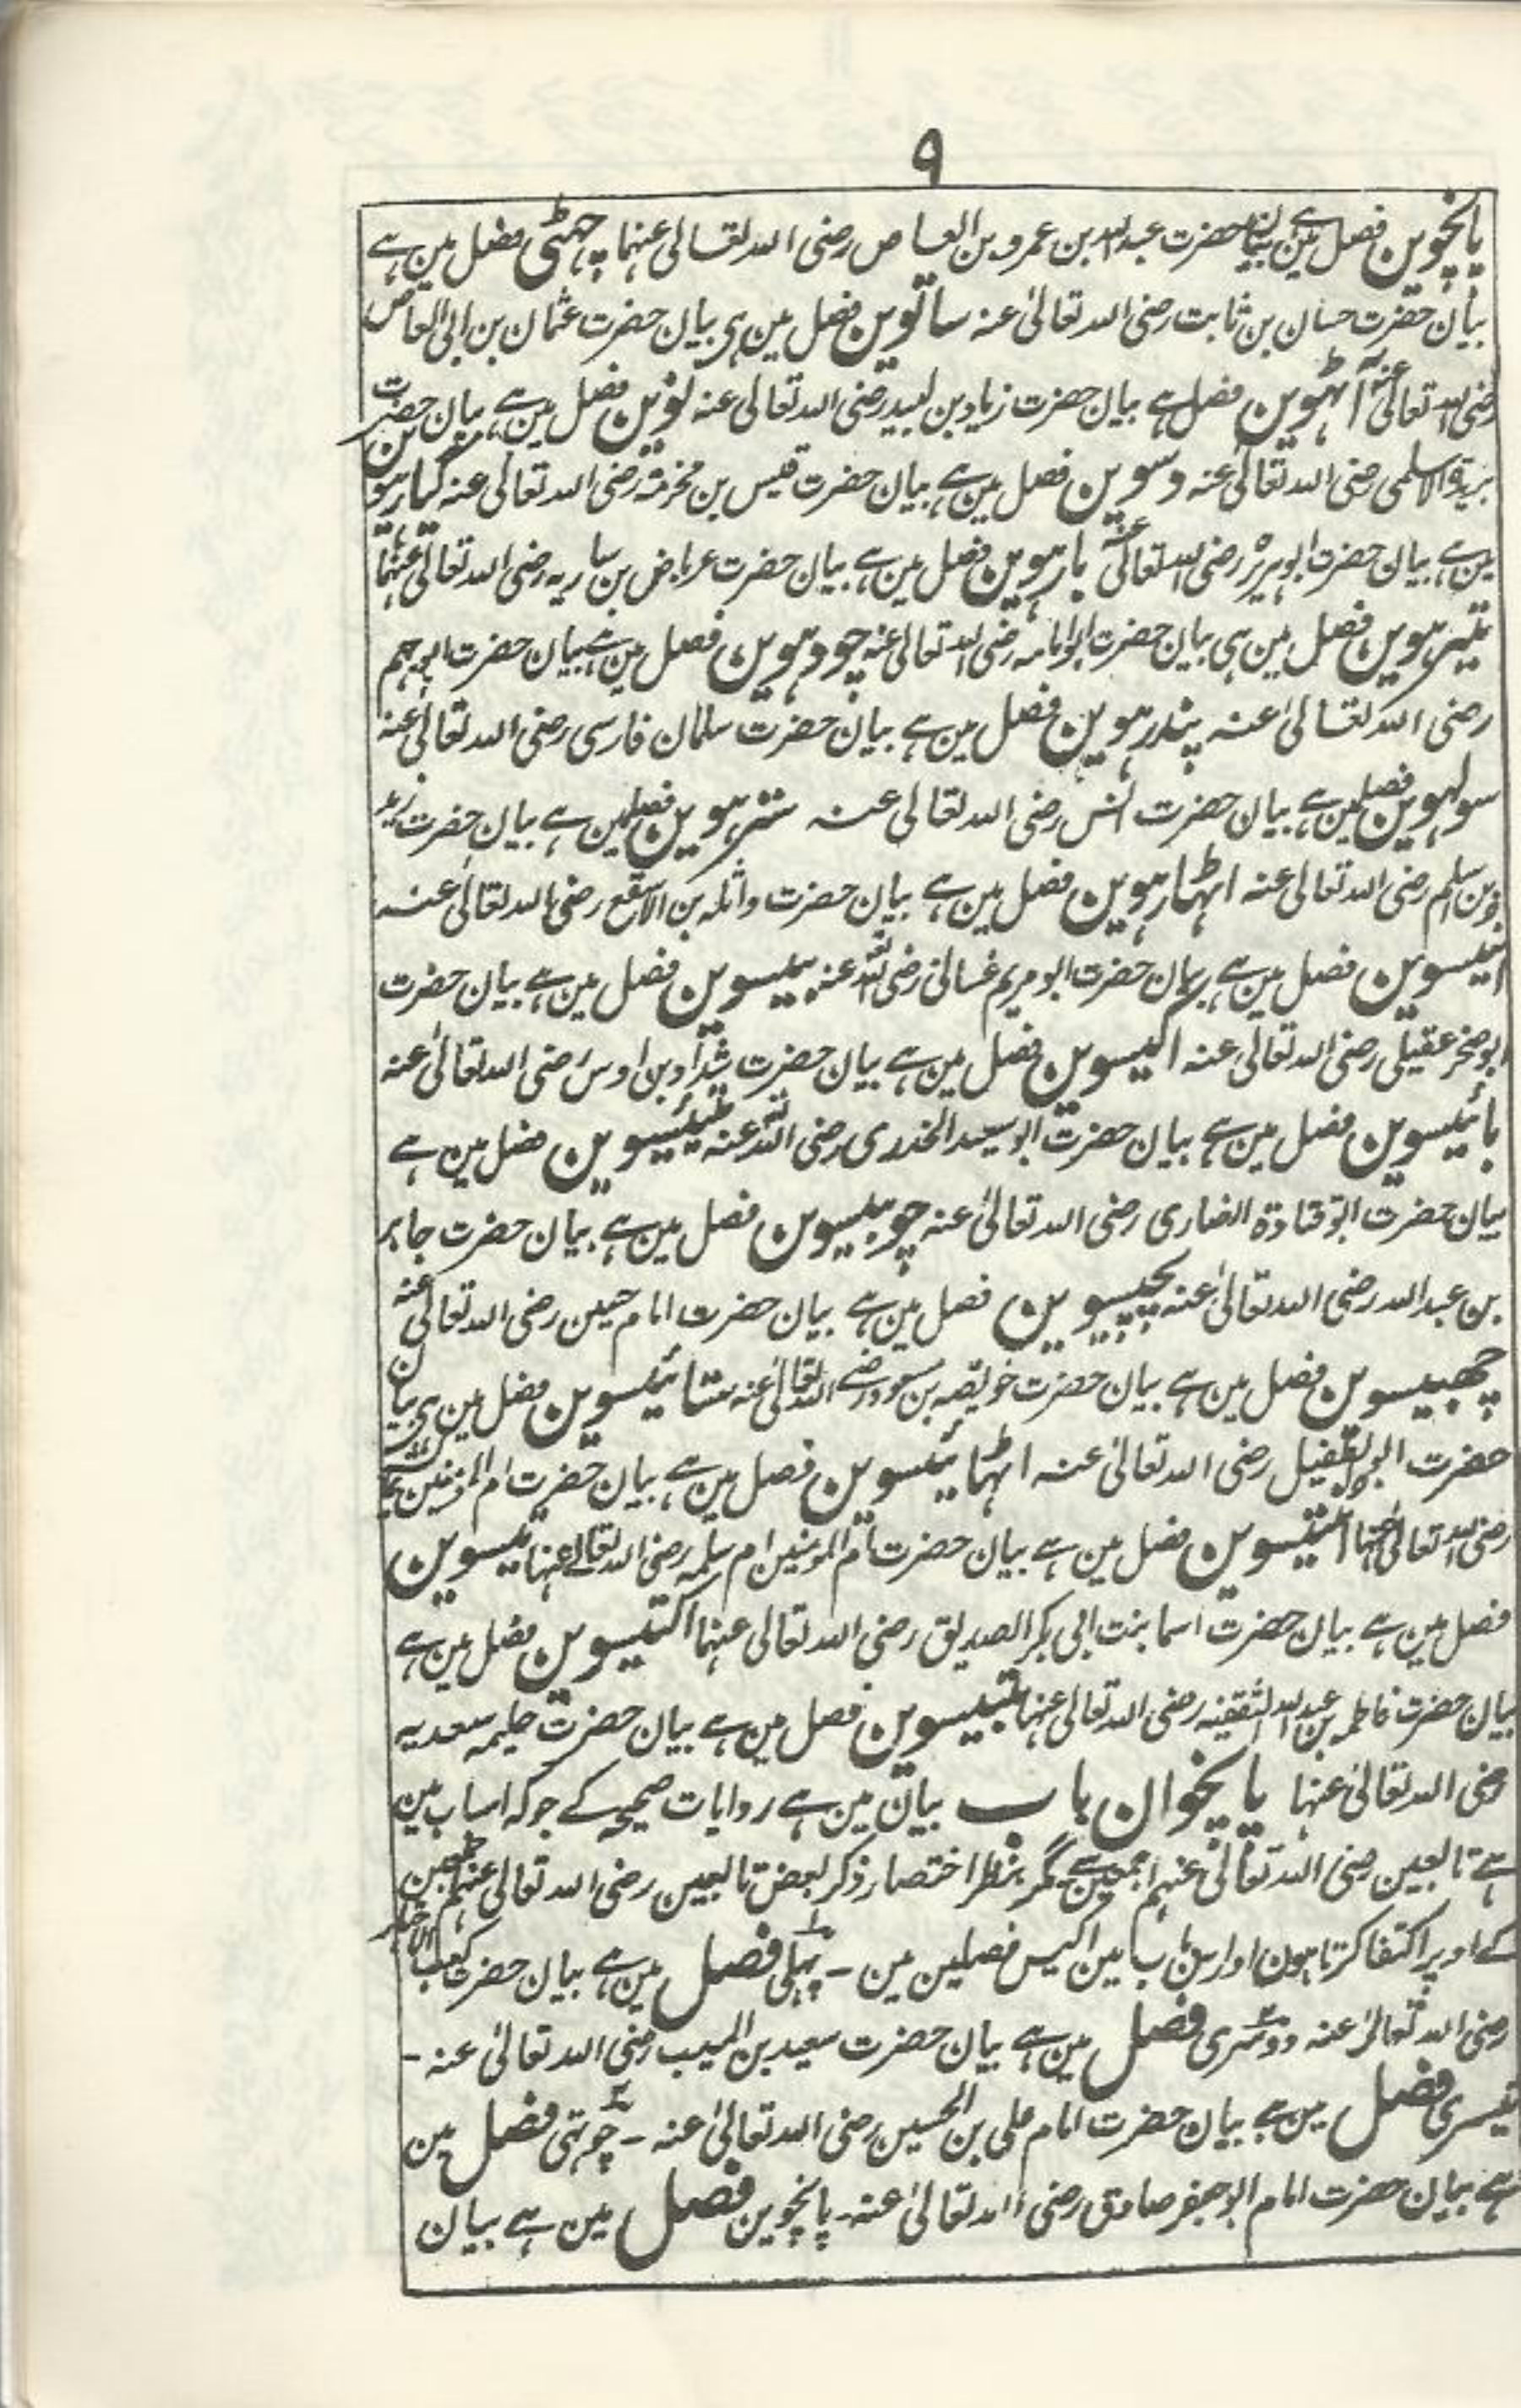 ۹
پانچوین فصل مین ہے بیان حضرت عبداللہ بن عمرو بن العاص رضی اللہ تعالی عنہما چہٹی فصل مین ہے
بیان حضرت حسان بن ثابت رضی اللہ تعالیٰ عنہ ساتوین فصل مین ہی بیان حضرت عثمان بن ابی العاص
رضی اللہ تعالیٰ عنہ آٹہوین فصل ہے بیان حضرت زیاد بن لبید رضی اللہ تعالی عنہ نوین فصل مین ہے بیان حضرت
بریدۃ الاسلمی رضی اللہ تعالیٰ عنہ دسوین فصل مین ہے بیان حضرت قیس بن مخرمۃ رضی اللہ تعالی عنہ گیارہوین
مین ہے بیان حضرت ابوہریرہ رضی اللہ تعالیٰ عنہ بارہوین فصل مین ہے بیان حضرت عرباض بن ساریہ رضی اللہ تعالیٰ عنہما
تیرہوین فصل مین ہی بیان حضرت ابوامامہ رضی اللہ تعالی عنہ چودہوین فصل مین ہے بیان حضرت ابوجہم
رضی اللہ تعالیٰ عنہ پندرہوین فصل مین ہے بیان حضرت سلمان فارسی رضی اللہ تعالیٰ عنہ
سولہوین فصل مین ہے بیان حضرت انس رضی اللہ تعالی عنہ سترہوین فصل مین ہے بیان حضرت زید
بن سلم رضی اللہ تعالی عنہ اٹہارہوین فصل مین ہے بیان حضرت واثلہ بن الاسقع رضی اللہ تعالیٰ عنہ
انیسوین فصل مین ہے بیان حضرت ابو مریم غسانی رضی اللہ عنہ بیسوین فصل مین ہے بیان حضرت
ابوصخر عقیلی رضی اللہ تعالی عنہ اکیسوین فصل مین ہے بیان حضرت شداد بن اوس رضی اللہ تعالیٰ عنہ
بائیسوین فصل مین ہے بیان حضرت ابو سعید الخدری رضی اللہ عنہ تیئیسوین فصل مین ہے
بیان حضرت ابوقتادۃ انصاری رضی اللہ تعالیٰ عنہ چوبیسوین فصل مین ہے بیان حضرت جابر
بن عبداللہ رضی اللہ تعالیٰ عنہ پچیسوین فصل مین ہے بیان حضرت امام حسین رضی اللہ تعالیٰ عنہ
چھبیسوین فصل مین ہے بیان حضرت خویصہ بن مسعود رضے اللہ تعالیٰ عنہ ستائیسوین فصل مین ہی بیان
حضرت ابو الطفیل رضی اللہ تعالیٰ عنہ اٹہائیسوین فصل مین ہے بیان حضرت ام المومنین
رضی اللہ تعالیٰ عنہا انتیسوین فصل مین ہے بیان حضرت ام المومنین ام سلمہ رضی اللہ تعالے عنہا تیسوین
فصل مین ہے بیان حضرت اسما بنت ابی بکر الصدیق رضی اللہ تعالی عنہما اکتیسوین فصل مین ہے
بیان حضرت فاطمہ بن عبداللہ الثقفیہ رضی اللہ تعالی عنہا بتیسوین فصل مین ہے بیان حضرت حلیمہ سعدیہ
رضی اللہ تعالیٰ عنہا پانچوان باب بیان مین ہے روایات صحیحہ کے جو کہ اس باب مین
ہے تابعین رضی اللہ تعالیٰ عنہم اجمعین سے مگر بنظر اختصار ذکر بعض تابعین رضی اللہ تعالی عنہم اجمعین
کے اوپر اکتفا کرتا ہون اور اس باب مین اکیس فصلین مین - پہلی فصل مین ہے بیان حضرت کعب الاحبار
رضی اللہ تعالیٰ عنہ دوسری فصل مین ہے بیان حضرت سعید بن المسیب رضی اللہ تعالیٰ عنہ -
تیسری فصل مین ہے بیان حضرت امام علی بن الحسین رضی اللہ تعالیٰ عنہ - چوتہی فصل مین
ہے بیان حضرت امام ابوجعفر صادق رضی اللہ تعالیٰ عنہ - پانچوین فصل مین ہے بیان